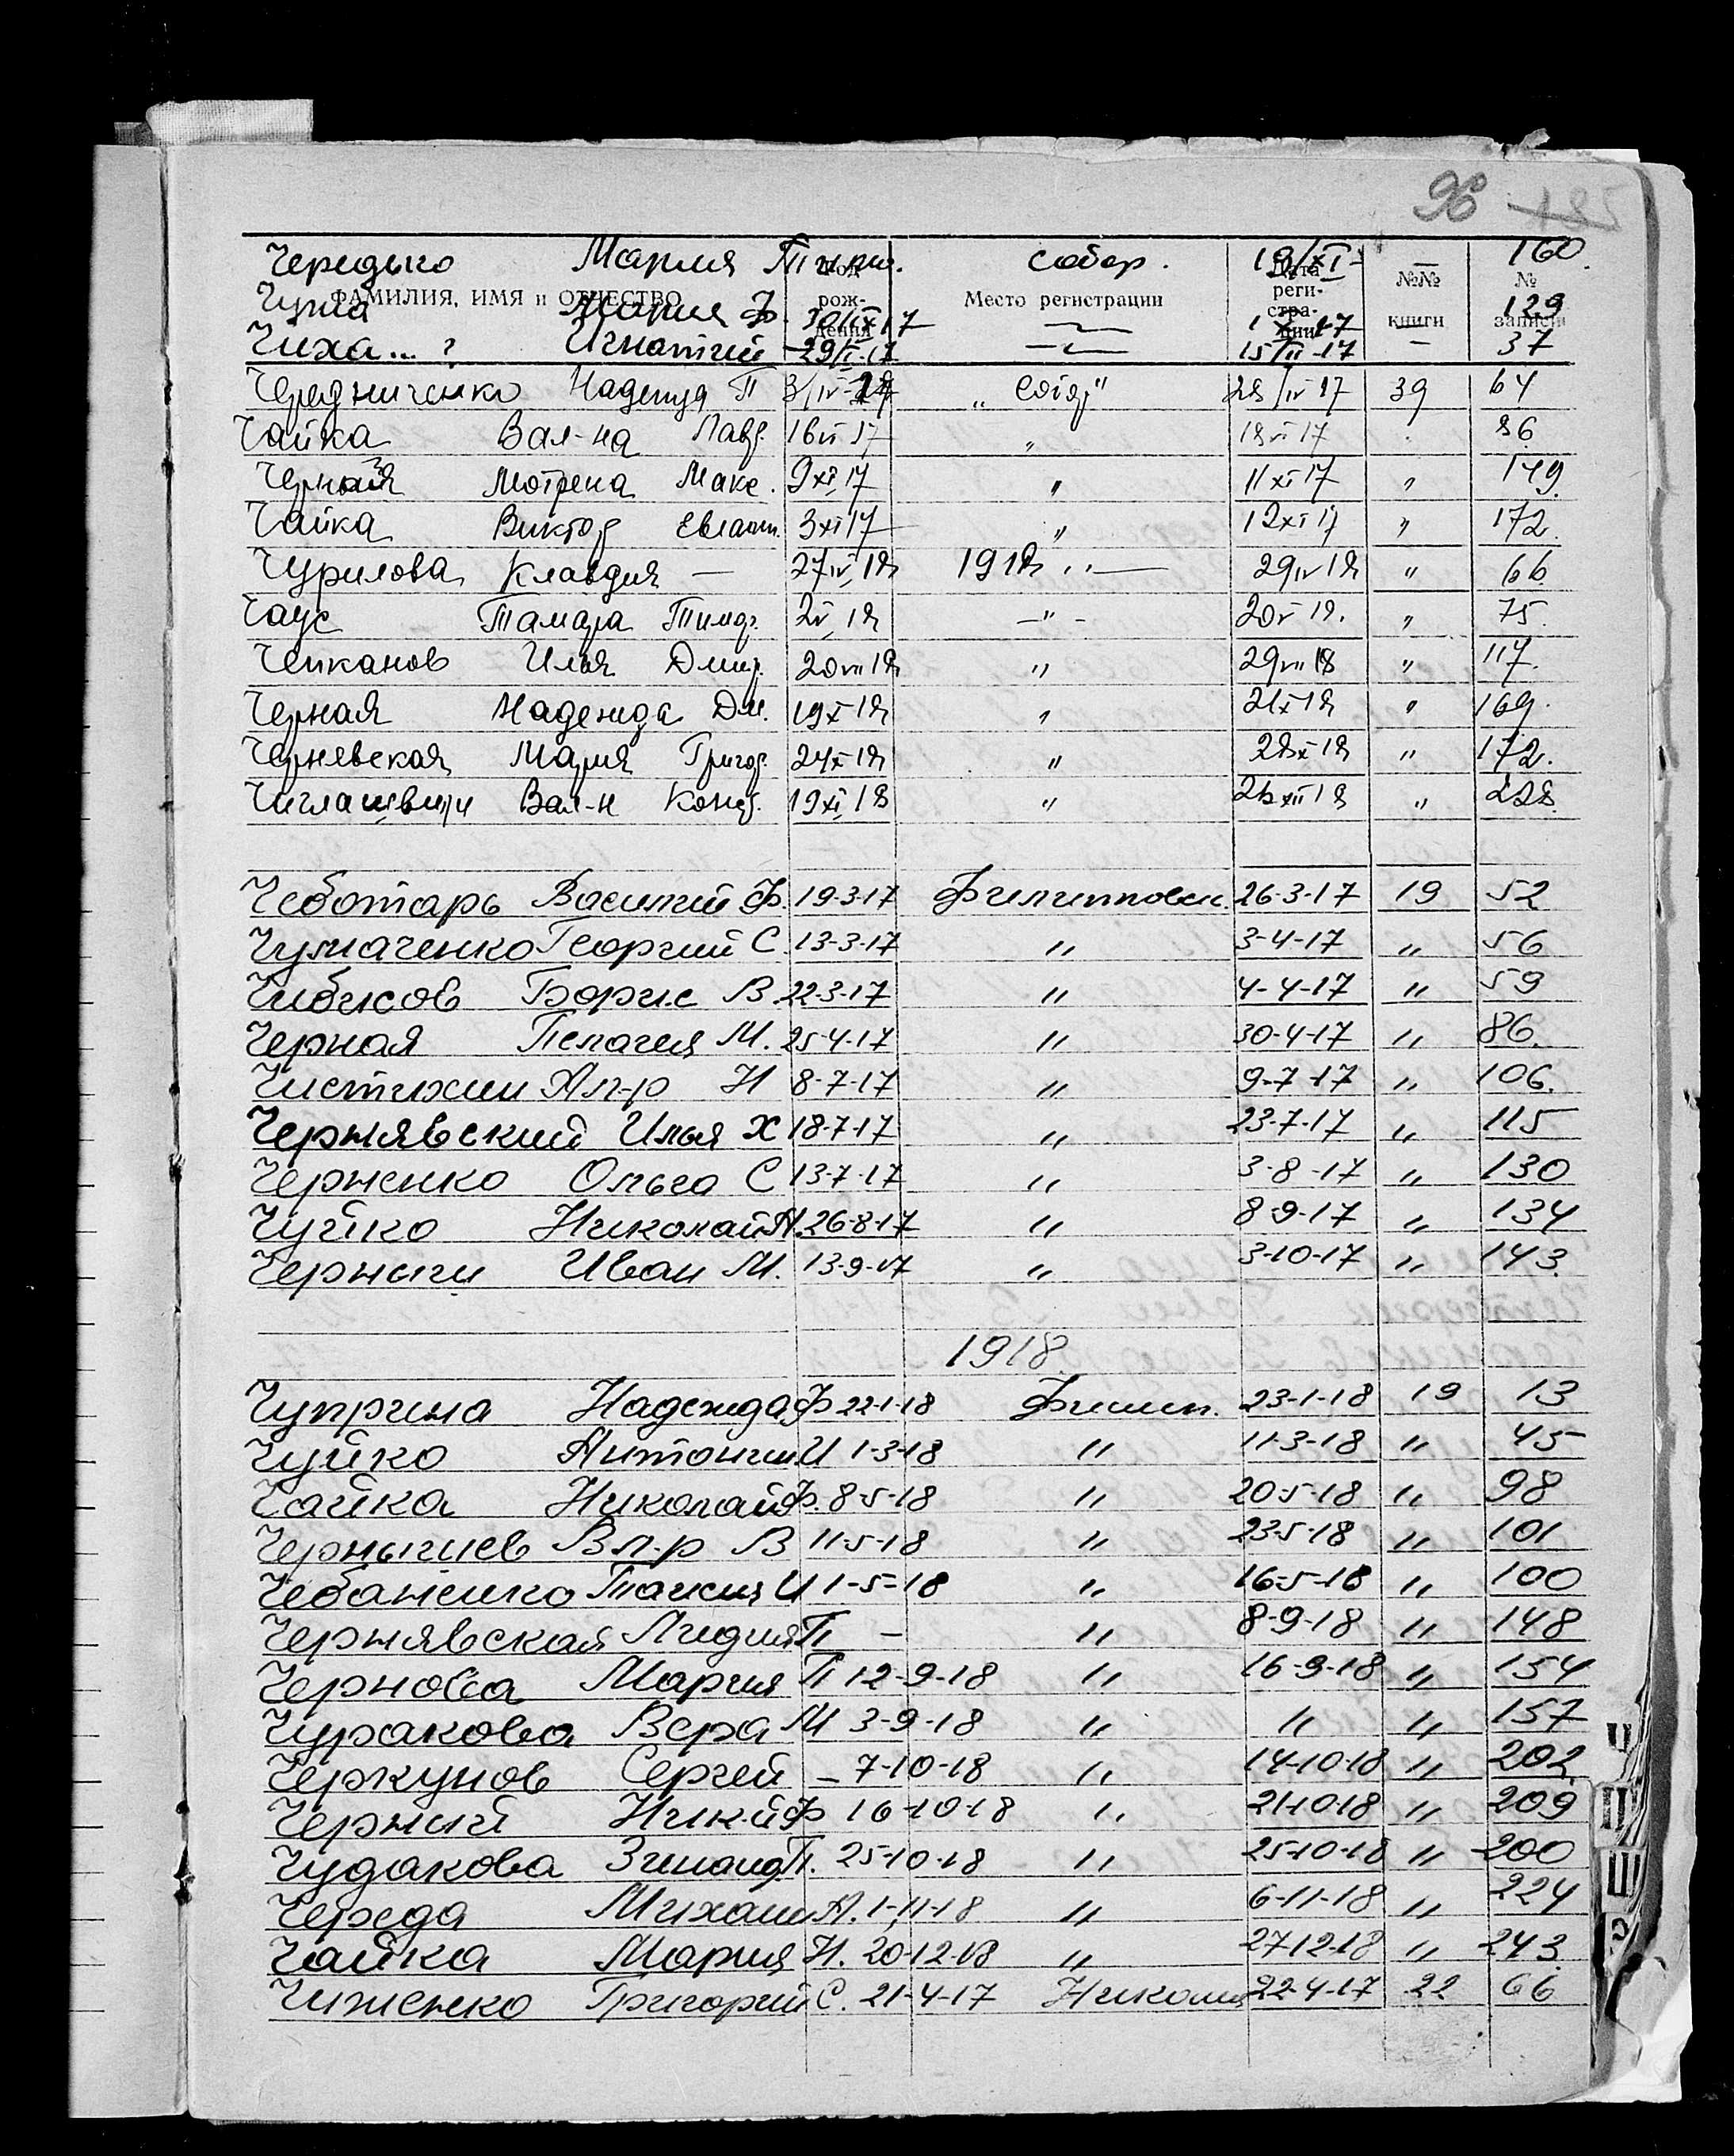 96 181
Чередько Мария Тихон. собор. 19/XI - — 160.
ФАМИЛИЯ, ИМЯ и ОТЧЕСТВО Год рождения Место регистрации Дата регистрации №№ книги № записи
Чупка Мария Ф. 30/IX 17 —„— 1 X-17 — 129
Чиха... ? Игнатий —„— 15/III-17 — 37
Чередниченко Надежда П 3/IV-17 „ собор" 28/IV 17 39 64
Чайка Вал-на Павл. 16VI 17 „ 18VI 17 86
Черная Мотрена Макс. 9XI,17 „ 11XI 17 „ 149.
Чайка Виктор Евламп. 3XI17 „ 12XI 17 „ 172.
Чурилова Клавдия — 27IV,18 1918 „ — 29IV 18 „ 66
Чаус Тамара Тимоф. 2V,18 —"— 20V 18. „ 75.
Чепканов Илья Дмитр. 20VII18 „ 29VII 18 „ 117.
Черная Надежда Дм. 19X18 „ 21X18 „ 169.
Чернявская Мария Григор. 24X18 „ 28X18 „ 172.
Вал-н Конд. 19XI,18 „ 26XII18 „ 228
Чеботарь Василий Ф. 19-3-17 Филипповск. 26-3-17 19 52
Чумаченко Георгий С. 13-3-17 „ 3-4-17 „ 56
Чибисов Борис В. 22-3-17 „ 4-4-17 „ 59
Черная Пелагея М. 25-4-17 „ 30-4-17 „ 86.
Чистихин Ал-р Н 8-7-17 „ 9-7-17 „ 106.
Чернявский Илья Х 18-7-17 „ 23-7-17 „ 115
Черненко Ольга С 13-7-17 „ 3-8-17 „ 130
Чуйко Николай А. 26-8-17 „ 8-9-17 „ 134
Черныги Иван М. 13-9-17 „ 3-10-17 „ 143.
1918.
Чуприна Надежда Ф 22-1-18 Филип. 23-1-18 19 13
Чуйко Антонин И 1-3-18 „ 11-3-18 „ 45
Чайка Николай Ф. 8-5-18 „ 20-5-18 „ 98
Чернышев Вл-р В 11-5-18 „ 23-5-18 „ 101
Чебаненко Таисия И 1-5-18 „ 16-5-18 „ 100
Чернявская Лидия П — „ 8-9-18 „ 148
Чернова Мария П 12-9-18 „ 16-9-18 „ 154
Чуракова Вера М 3-9-18 „ „ „ 157
Черкунов Сергей — 7-10-18 „ 14-10-18 „ 202
Черный Ник-й Ф 16-10-18 „ 21-10-18 „ 209
Чудакова Зинаид. П. 25-10-18 „ 25-10-18 „ 200
Череда Михаил А. 1-11-18 „ 6-11-18 „ 224
Чайка Мария Н. 20-12-18 „ 27-12-18 „ 243.
Чиженко Григорий С. 21-4-17 Никола 22-4-17 22 66
Ч
Ц
Ш
Э